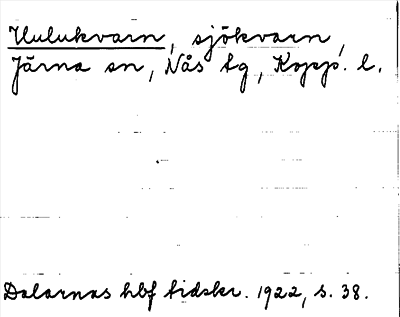 Hulukvarn, sjökvarn,
Järna sn, Nås tg, Kopp. l.
Dalarnas hbf tidskr. 1922, s. 38.